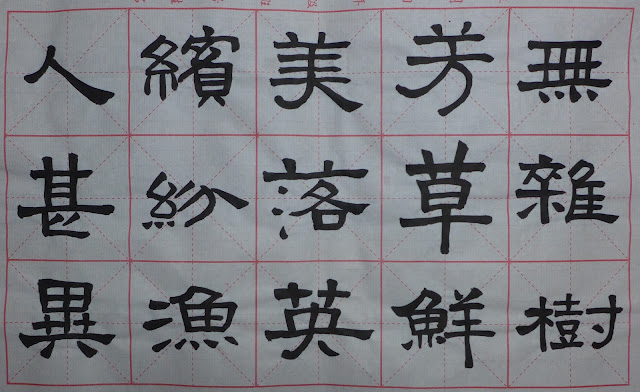 無雜樹
芳草鮮
美落英
繽紛漁
人甚異